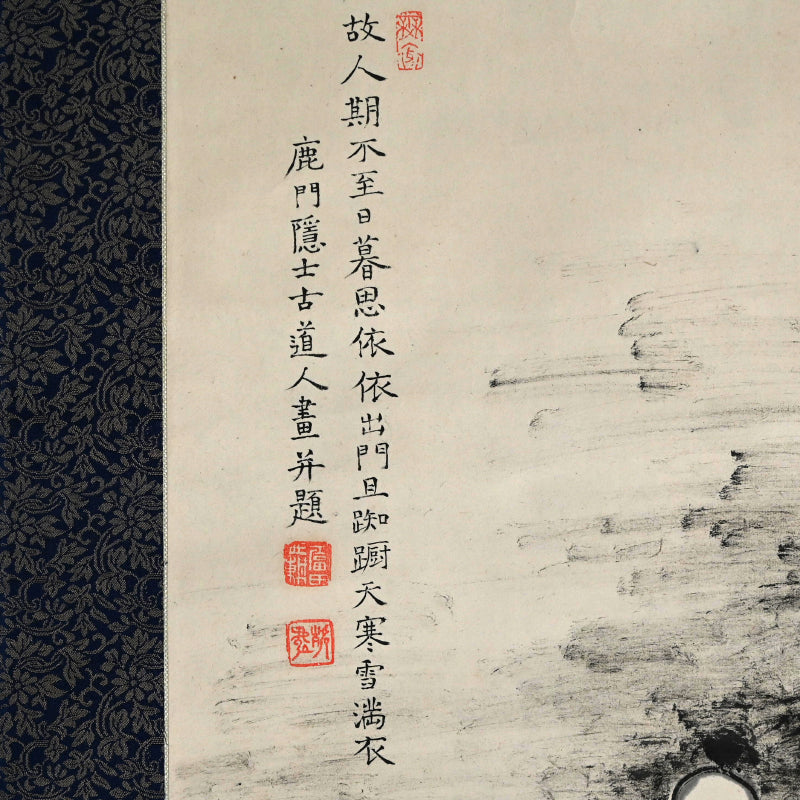 故人期不至日暮思依依出門且踟躕天寒雪満衣
鹿門隱士古道人畫并題